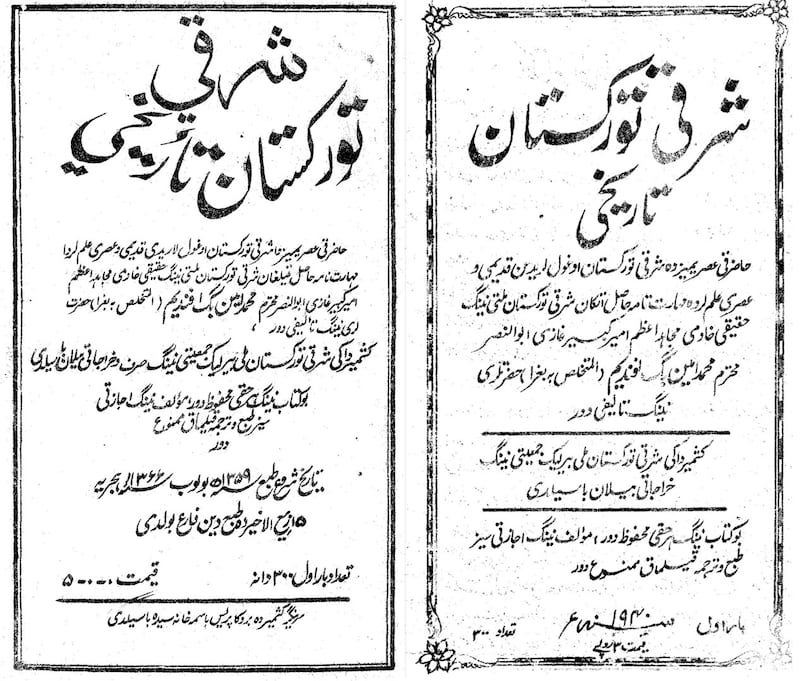 شرقی
تورکستان تاریخی
حاضرقی عصریمیزدا شرقی تورکستان اوغول لاریدی قدیمی و عصری علم لردا
مهارت تامه حاصل قیلغان شرقی تورکستان ملتی نینگ حقیقی خادمی مجاهد اعظم
امیر کبیر غازی ابوالنصر محترم محمد امین بگ افندیم (المتخلص به بغرا) حضرت
لری نینگ تألیفی دور
کشمیرداکی شرقی تورکستان ملی بیرلیک جمعیتی نینگ صرف و خراجاتی بیلان باسیلدی
بو کتاب نینگ هر حقی محفوظ دور، مؤلف نینگ اجازتی
سیز طبع و ترجمه قیلماق ممنوع
دور
تاریخ شروع طبع سنه ۱۳۵۹ بولوب سنه ۱۳۶۶ هجریه
۵ ربیع الاخیرده طبع دین فارغ بولدی
تعداد بار اول ۳۰۰ دانه قیمت ۰-۰-۵
سرینگر کشمیرده بروکا پریس باسمه خانه سیده باسیلدی
شرقی تورکستان
تاریخی
حاضرقی عصریمیزده شرقی تورکستان اوغول لریدین قدیمی و
عصری علم لرده مهارت تامه حاصل اتکان شرقی تورکستان ملتی نینگ
حقیقی خادمی مجاهد اعظم امیر کبیر غازی ابوالنصر
محترم محمد امین بگ افندیم (المتخلص به بغرا) حضرتلری
نینگ تألیفی دور
کشمیرداکی شرقی تورکستان ملی بیرلیک جمعیتی نینگ
خراجاتی بیلان باسیلدی
بو کتاب نینگ هر حقی محفوظ دور، مؤلف نینگ اجازتی سیز
طبع و ترجمه قیلماق ممنوع دور
بار اول سنه ۱۹۴۰ ع تعداد ۳۰۰
قیمت ۳ روپے